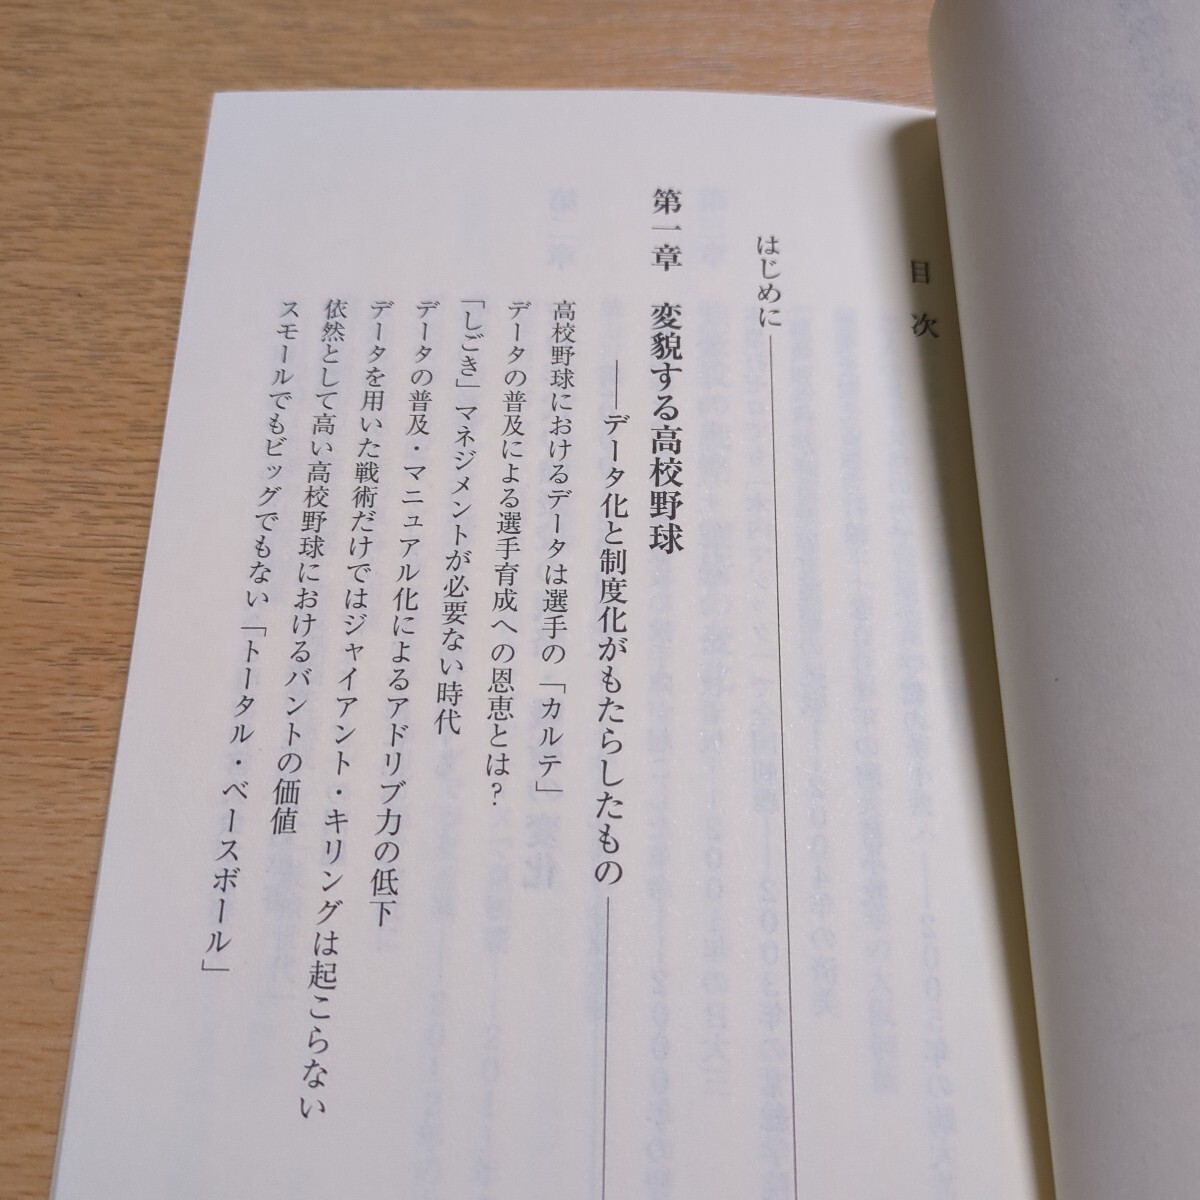 目次
はじめに
第一章 変貌する高校野球
――データ化と制度化がもたらしたもの
高校野球におけるデータは選手の「カルテ」
データの普及による選手育成への恩恵とは?
「しごき」マネジメントが必要ない時代
データの普及・マニュアル化によるアドリブ力の低下
データを用いた戦術だけではジャイアント・キリングは起こらない
依然として高い高校野球におけるバントの価値
スモールでもビッグでもない「トータル・ベースボール」